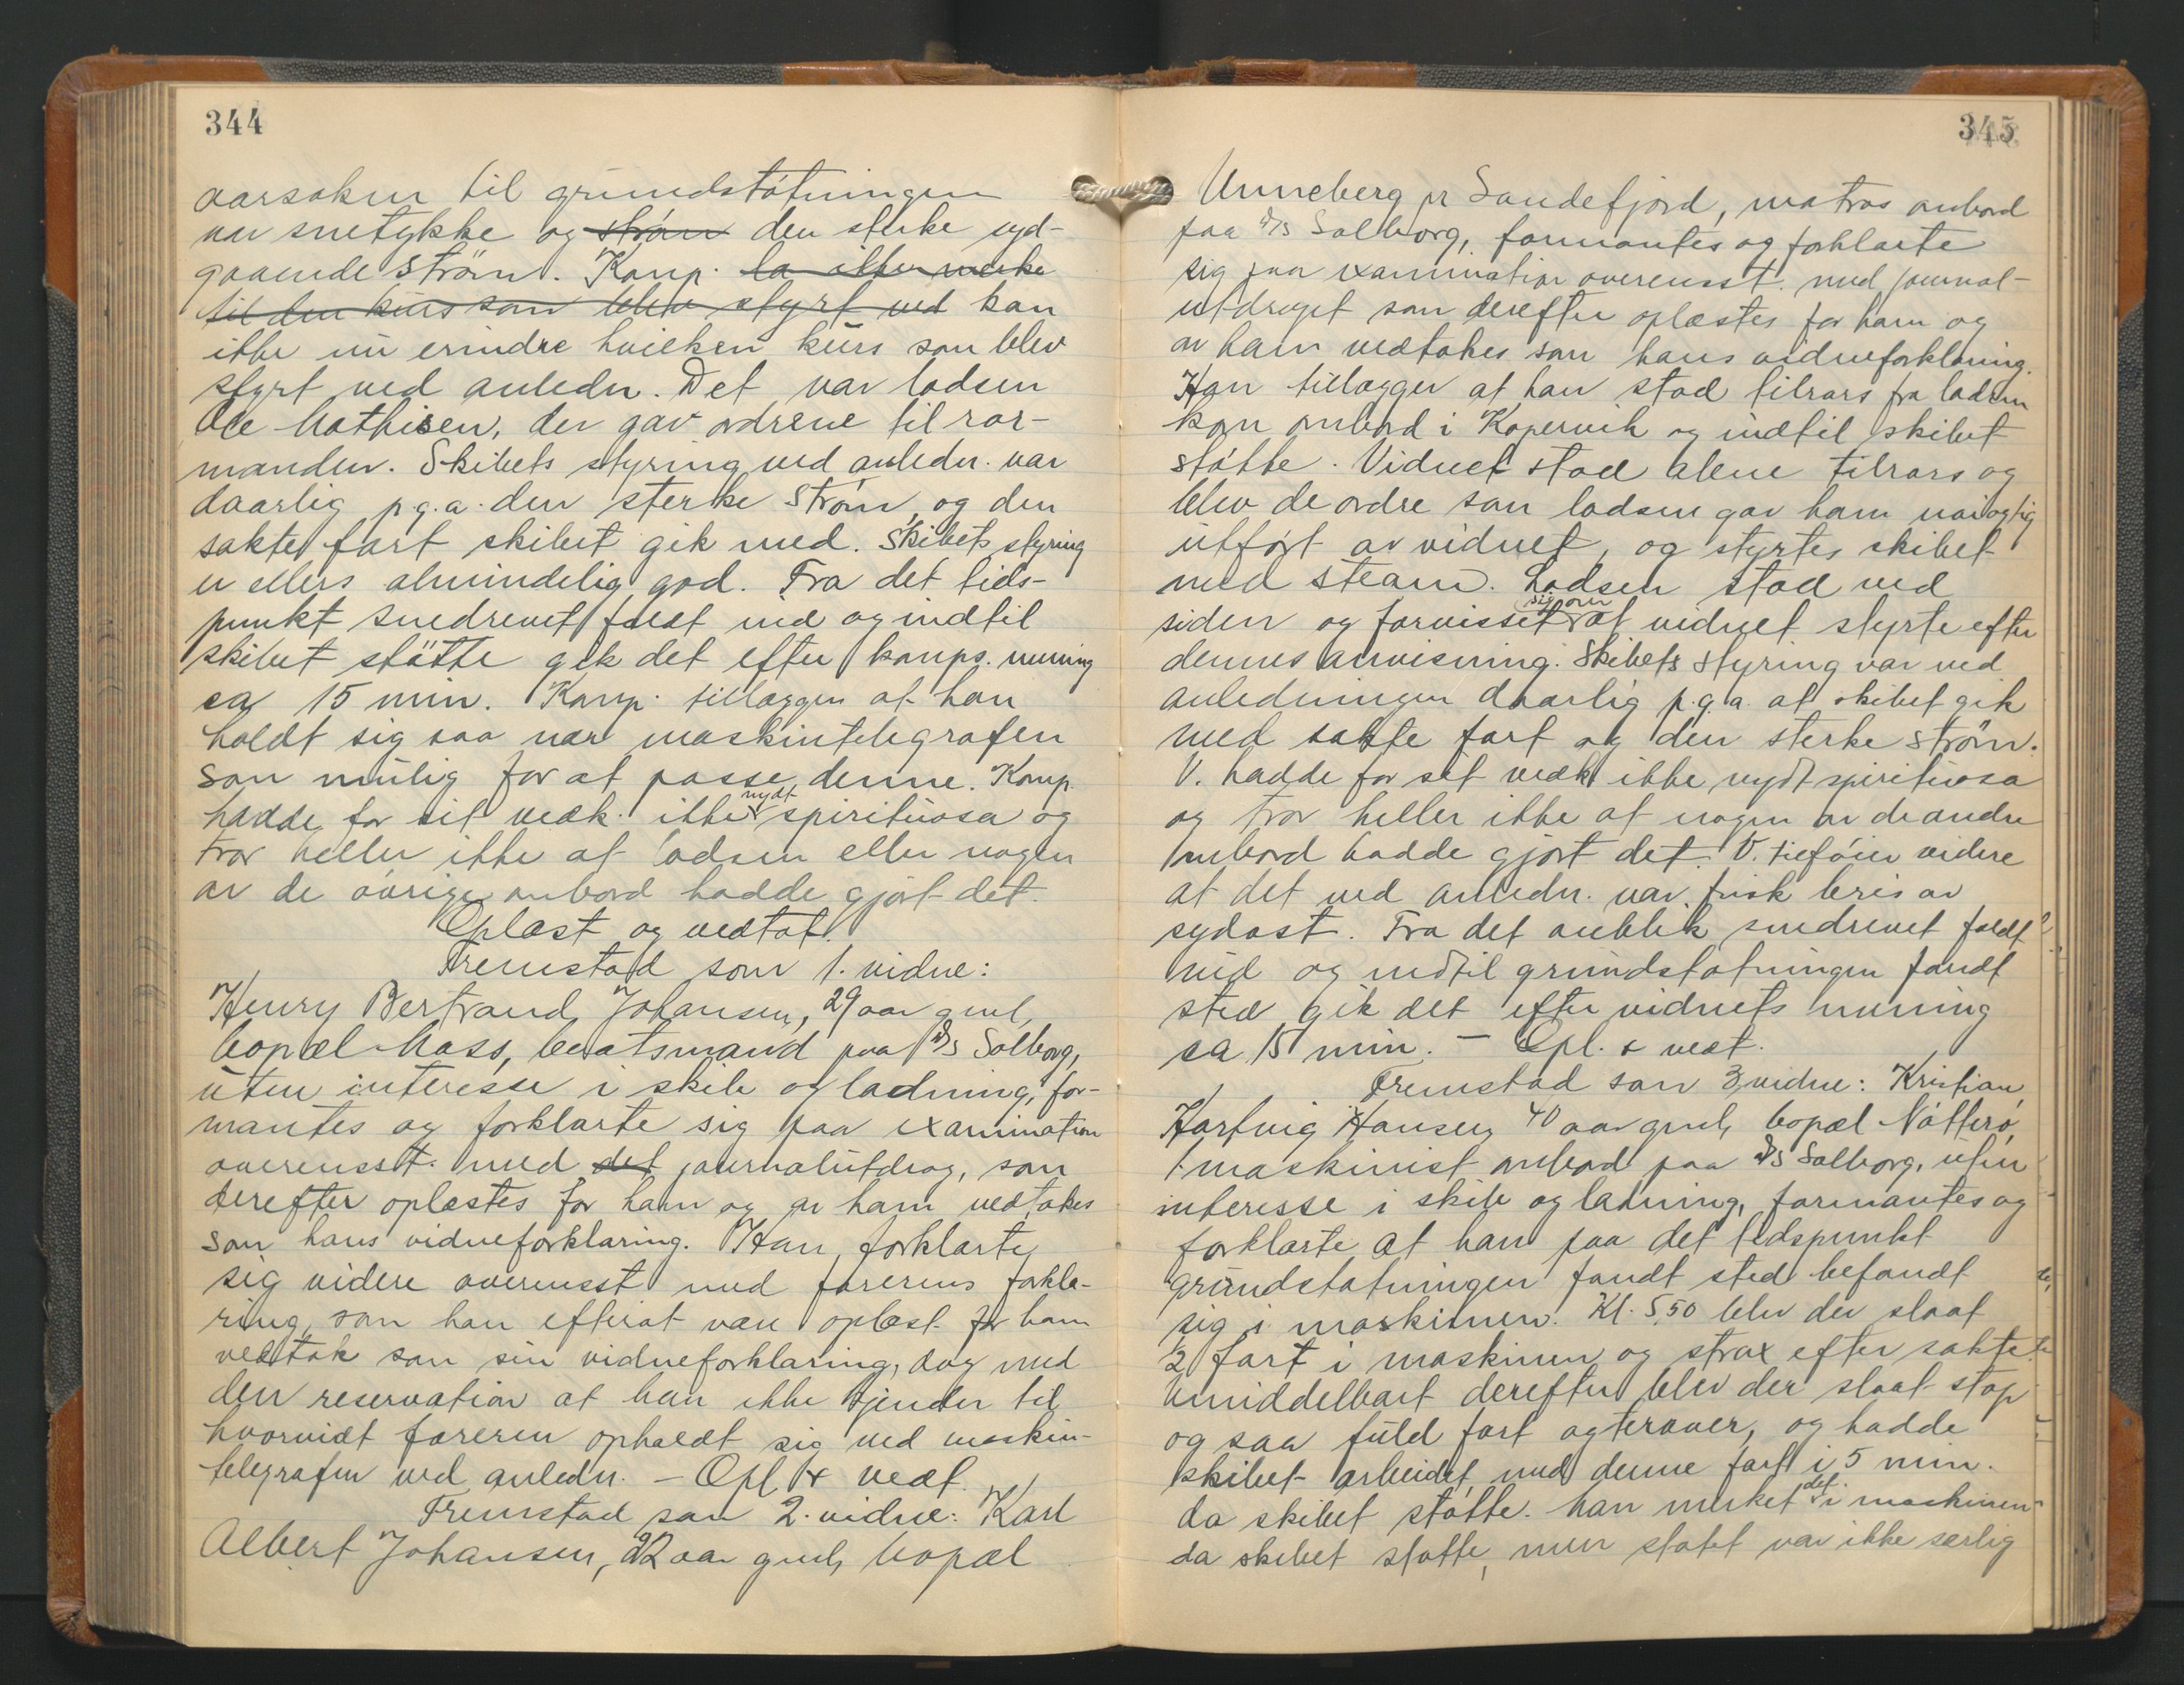 344
aarsaken til grundstötningen
var snetykke og ström den sterke syd-
gaaende ström. Komp. la ikke merke
til den kurs som blev styrt ved kan
ikke nu erindre hvilken kurs som blev
styrt ved anledn. Det var lodsen
Ole Mathisen, der gav ordrene til ror-
manden. Skibets styring ved anledn. var
daarlig p.g.a. den sterke ström og den
sakte fart skibet gik med. Skibets styring
er ellers almindelig god. Fra det tids-
punkt snedrevet faldt ned og indtil
skibet stötte gik det efter komps. mening
ca 15 min. Komp. tillægger at han
holdt sig saa nær maskintelegrafen
som mulig for at passe denne. Komp.
hadde for sit vedk. ikke nydt spirituosa og
tror heller ikke at lodsen eller nogen
av de övrige ombord hadde gjört det.
Oplæst og vedtat.
Fremstod som 1. vidne:
Henry Bertrand Johansen, 29 aar gml,
bopæl Moss, baatsmand paa D/S Solborg,
uten interesse i skib og ladning, for-
mantes og forklarte sig paa examination
overensst. med det journalutdrag, som
derefter oplæstes for ham og av ham vedtokes
som hans vidneforklaring. Han forklarte
sig videre overensst med förerens forkla-
ring, som han efterat være oplæst for ham
vedtok som sin vidneforklaring, dog med
den reservation at han ikke kjender til
hvorvidt föreren opholdt sig ved maskin-
telegrafen ved anledn. – Opl & vedt.
Fremstod som 2. vidne: Karl
Albert Johansen, 22 aar gml, bopæl
345
Unneberg pr Sandefjord, matros ombord
paa D/S Solborg, formantes og forklarte
sig paa examination overensst. med journal-
utdraget som derefter oplæstes for ham og
av ham vedtokes som hans vidneforklaring.
Han tillægger at han stod tilrors fra lodsen
kom ombord i Kopervik og indtil skibet
stötte. Vidnet stod alene tilrors og
blev de ordre som lodsen gav ham nöiagtig
utfört av vidnet, og styrtes skibet
med steam. Lodsen stod ved
siden og forvisset sig om at vidnet styrte efter
dennes anvisning. Skibets styring var ved
anledningen daarlig p.g.a. at skibet gik
med sakte fart og den sterke ström.
V. hadde for sit vedk ikke nydt spirituosa
og tror heller ikke at nogen av de andre
ombord hadde gjört det. V. tilföier videre
at det ved anledn. var frisk bris av
sydost. Fra det öieblik snedrevet faldt
ned og indtil grundstötningen fandt
sted gik det efter vidnets mening
ca 15 min. – Opl. & vedt.
Fremstod som 3 vidne: Kristian
Hartvig Hansen, 40 aar gml, bopæl Nötterö,
1 maskinist ombord paa D/S Solborg, uten
interesse i skib og ladning, formantes og
forklarte at han paa det tidspunkt
grundstötningen fandt sted befandt
sig i maskinen. Kl. 5,50 blev der slaat
½ fart i maskinen og strax efter sakte.
Umiddelbart derefter blev der slaat stop
og saa fuld fart agterover, og hadde
skibet arbeidet med denne fart i 5 min.
da skibet stötte. han merket det i maskinen
da skibet stötte, men stötet var ikke særlig